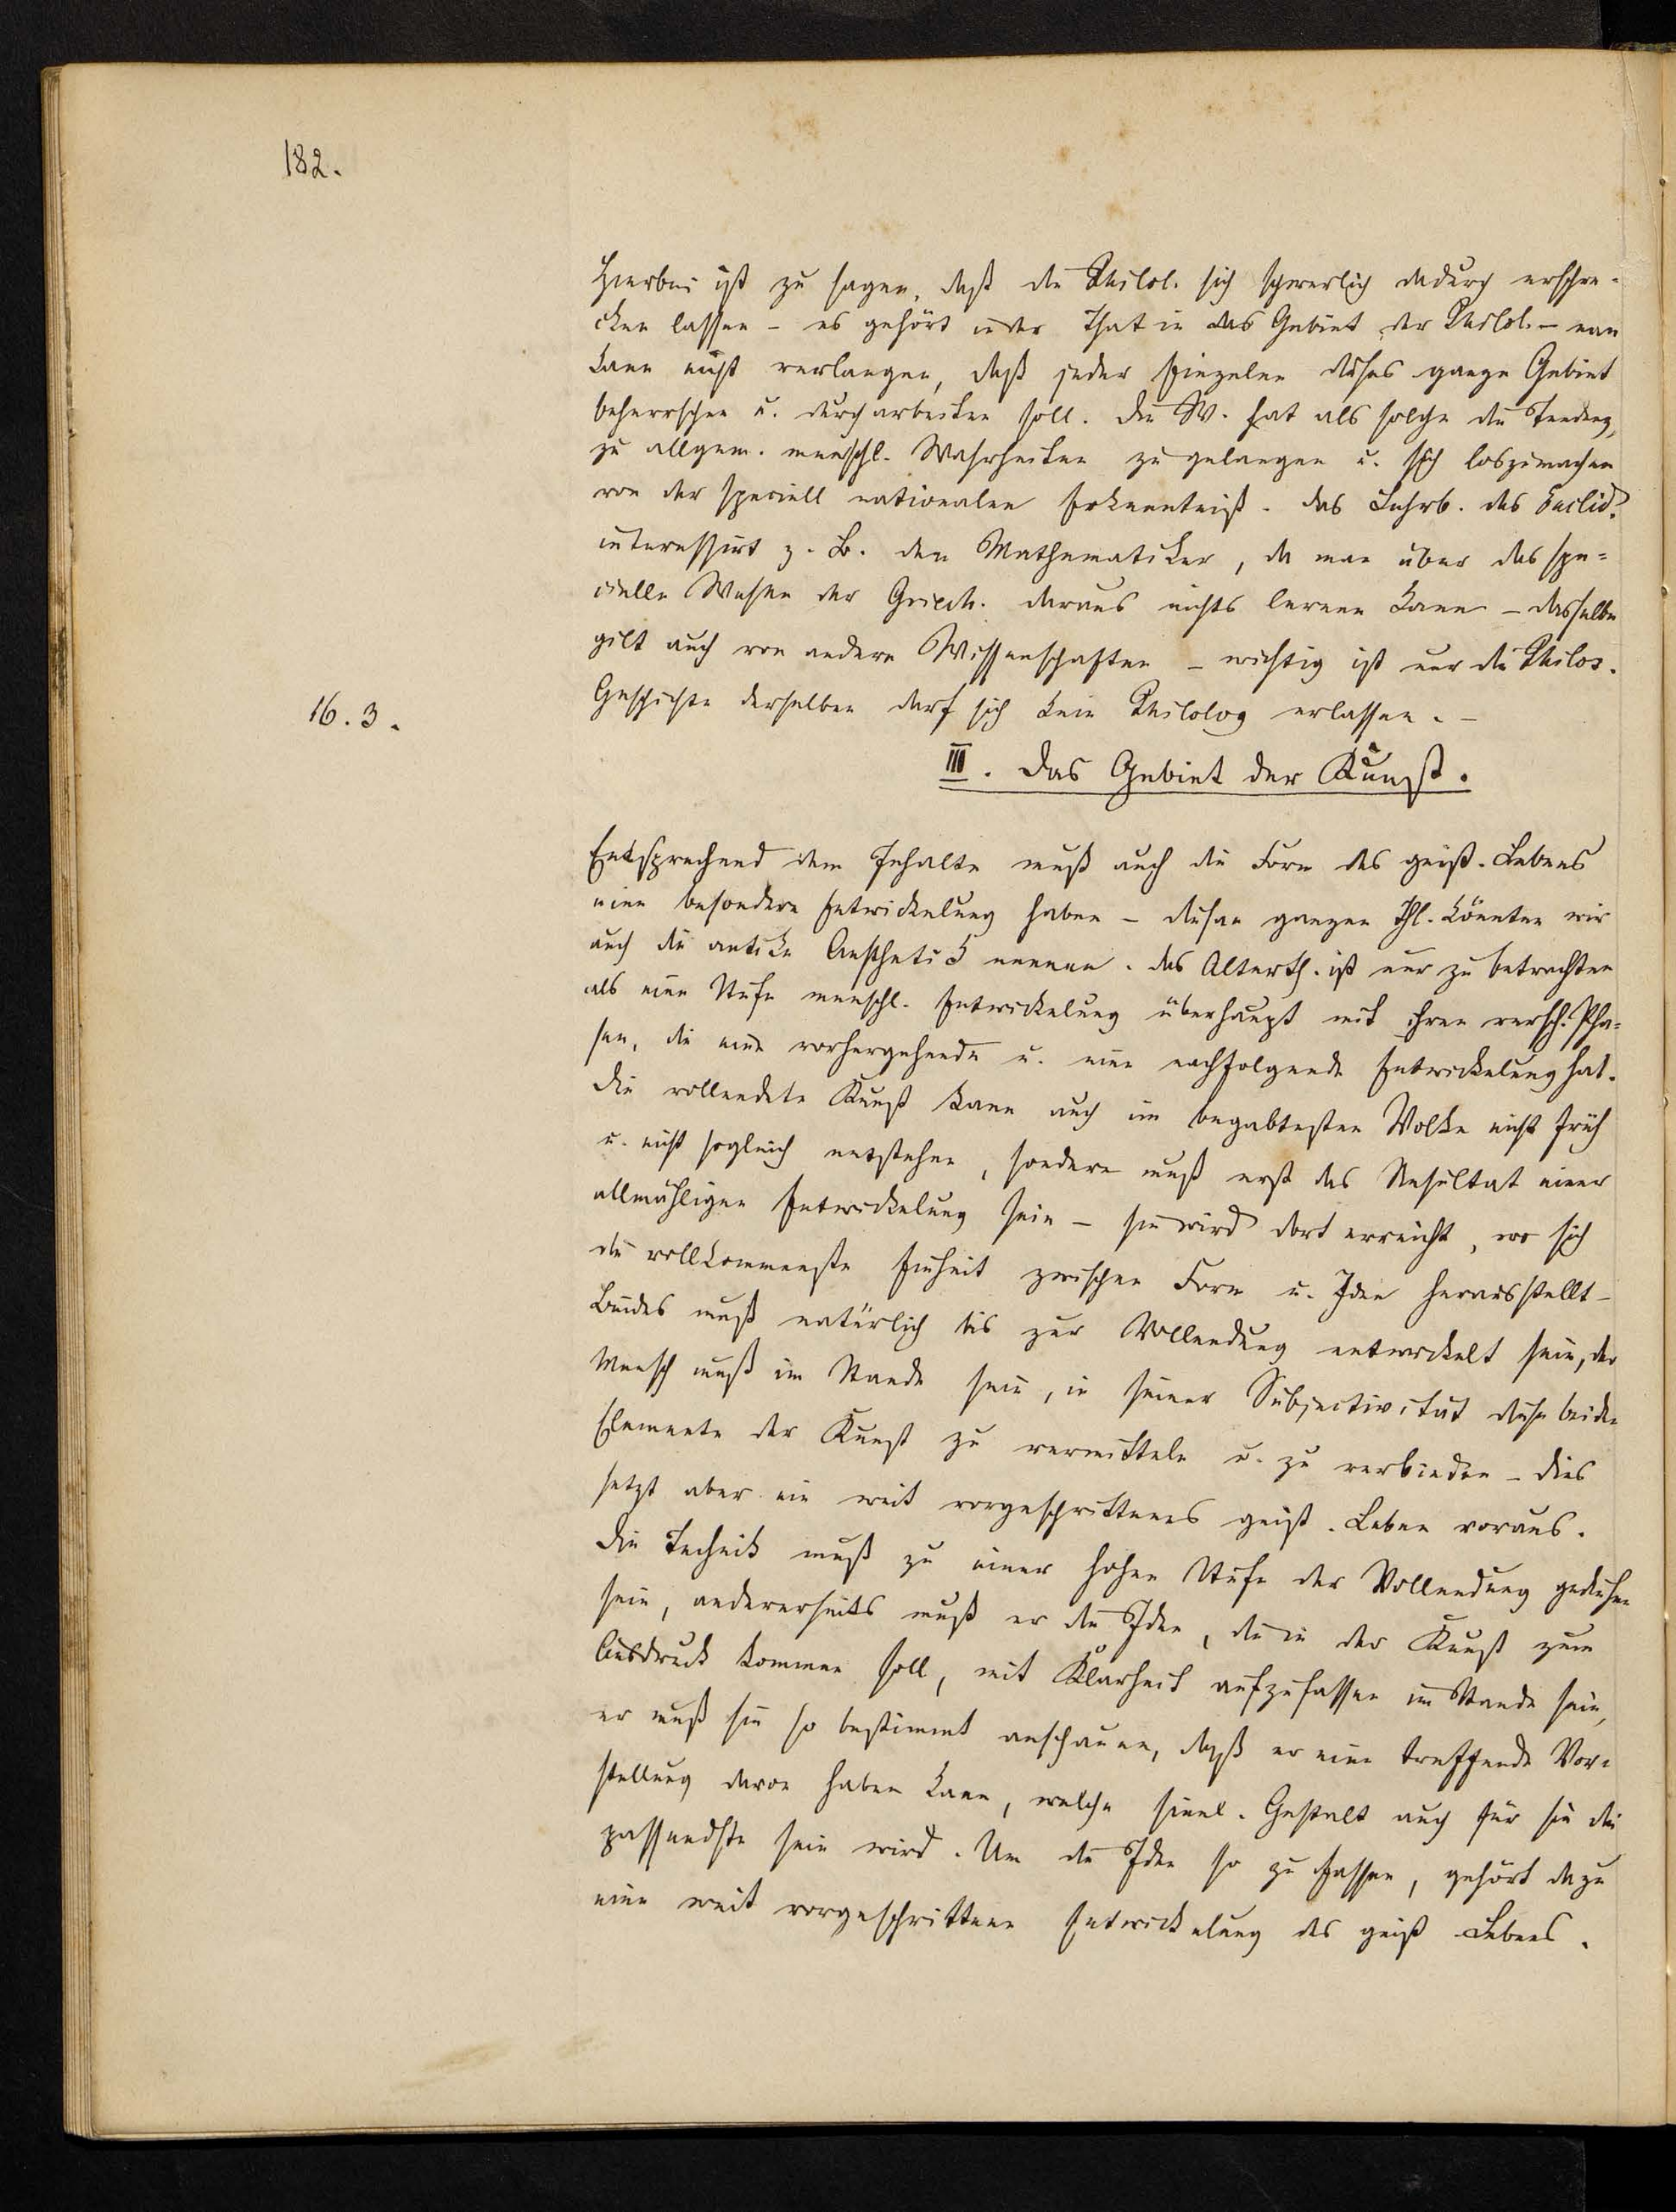 182.
Hierbei ist zu sagen, daß die Philol. sich schwerlich dadurch erschre-
cken lassen – es gehört in der That in das Gebiet der Philol. – man
kann nicht verlangen, daß jeder Einzelne dieses ganze Gebiet
beherrschen u. durcharbeiten soll. Die W. hat als solche die Tendenz,
zu allgem. menschl. Wahrheiten zu gelangen u. sich loszumachen
von der speciell nationalen Erkenntniß. Das Lehrb. des Euclid.
interessirt z. B. den Mathematiker, da man über das spe-
cielle Wesen der Griech. daraus nichts lernen kann – dasselbe
gilt auch von andern Wissenschaften – wichtig ist nur die Philos.
16. 3.
Geschichte derselben darf sich kein Philolog erlassen. –
III. Das Gebiet der Kunst.
Entsprechend dem Inhalte muß auch die Form des geist. Lebens
eine besondere Entwickelung haben – diesen ganzen Thl. könnten wir
auch die antike Aesthetik nennen. Das Alterth. ist nur zu betrachten
als eine Stufe menschl. Entwickelung überhaupt mit ihren versch. Pha-
sen, die eine vorhergehende u. eine nachfolgende Entwickelung hat.
Die vollendete Kunst kann auch im begabtesten Volke nicht früh
u. nicht sogleich entstehen, sondern muß erst das Resultat einer
allmähligen Entwickelung sein – sie wird dort erreicht, wo sich
die vollkommenste Einheit zwischen Form u. Idee herausstellt –
Beides muß natürlich bis zur Vollendung entwickelt sein, der
Mensch muß im Stande sein, in seiner Subjectivität diese beiden
Elemente der Kunst zu vermitteln u. zu verbinden – dies
setzt aber ein weit vorgeschrittenes geist. Leben voraus.
Die Technik muß zu einer hohen Stufe der Vollendung gediehen
sein, andererseits muß er die Idee, die in der Kunst zum
Ausdruck kommen soll, mit Klarheit aufzufassen im Stande sein,
er muß sie so bestimmt anschauen, daß er eine treffende Vor-
stellung davon haben kann, welche sinnl. Gestalt auch für sie die
passendste sein wird. Um die Idee so zu fassen, gehört dazu
eine weit vorgeschrittene Entwickelung des geist Lebens.